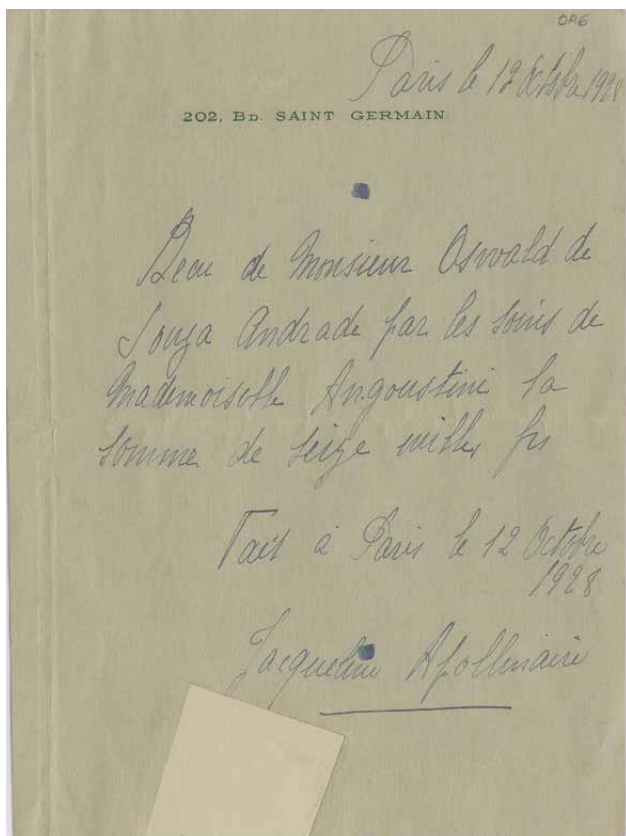 OA6
Paris le 12 Octobre 1928
202, BD. SAINT GERMAIN
Recu de Monsieur Oswald de
Souza Andrade par les soins de
Mademoiselle Angoustini la
somme de seize mille frs
Fait à Paris le 12 Octobre
1928
Jacqueline Apollinaire